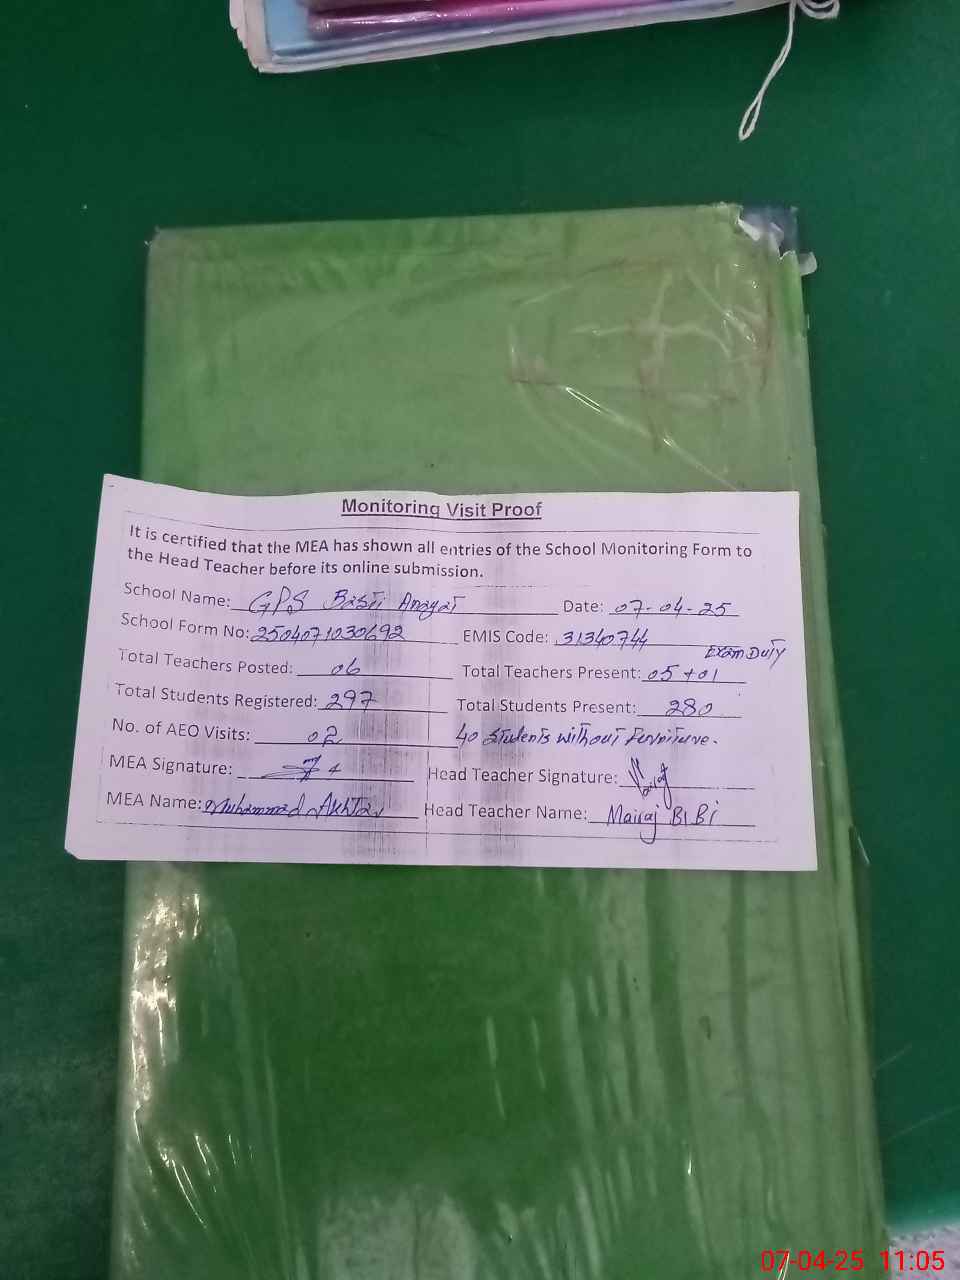 Monitoring Visit Proof
It is certified that the MEA has shown all entries of the School Monitoring Form to
the Head Teacher before its online submission.
School Name: GPS Basti Anayat Date: 07-04-25
School Form No: 2504071030692 EMIS Code: 31340744
Exam Duty
Total Teachers Posted: 06 Total Teachers Present: 05+01
Total Students Registered: 297 Total Students Present: 280
No. of AEO Visits: 02 40 Students without furniture.
MEA Signature: Head Teacher Signature:
MEA Name: Muhammad Akhtar Head Teacher Name: Mairaj BiBi
07-04-25 11:05